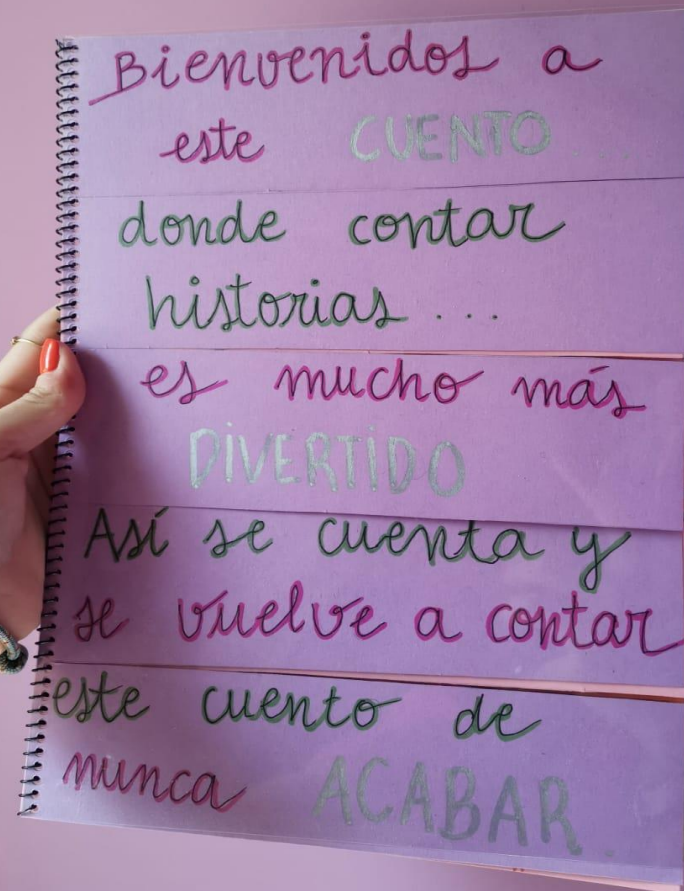 Bienvenidos a
este CUENTO....
donde contar
historias...
es mucho más
DIVERTIDO
Así se cuenta y
se vuelve a contar
este cuento de
nunca ACABAR.